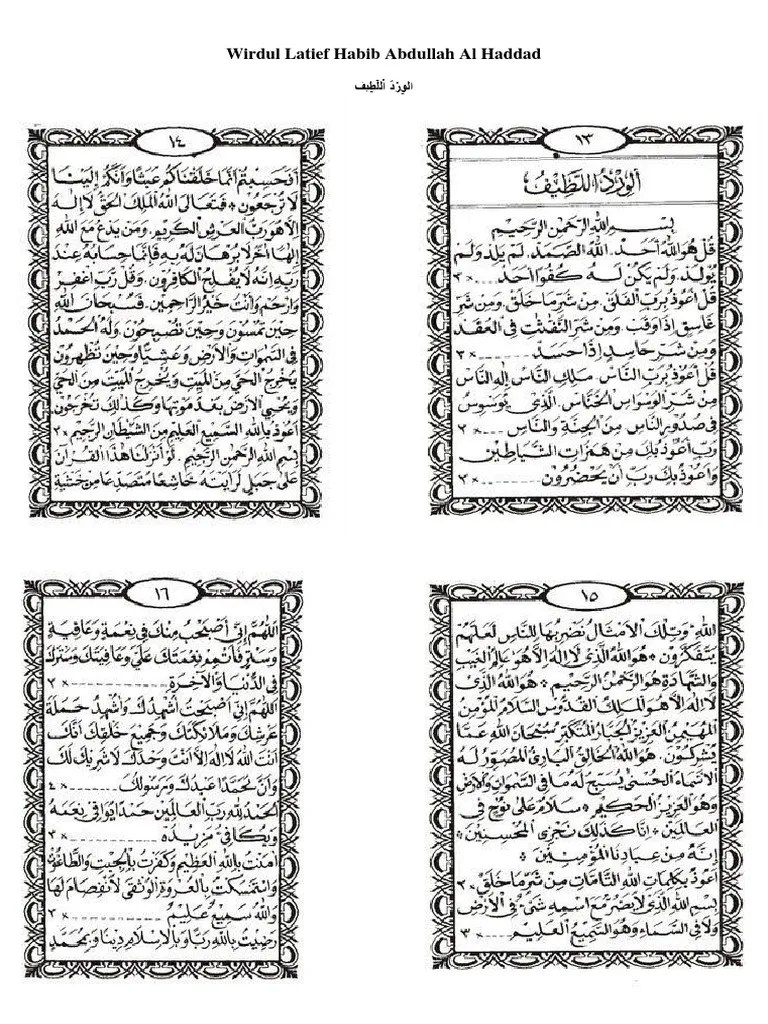 Wirdul Latief Habib Abdullah Al Haddad
الوِرْدُ اَللَّطِيف
١٣
الورد اللطيف
بسم الله الرحمن الرحيم
قل هو الله أحد. الله الصمد. لم يلد ولم
يولد. ولم يكن له كفوا احد ... × ٣
قل أعوذ برب الفلق. من شر ما خلق. ومن شر
غاسق إذا وقب. ومن شر النفثت فى العقد
ومن شر حاسد إذا حسد ... × ٣
قل أعوذ برب الناس. ملك الناس إله الناس
من شر الوسواس الخناس. الذى يوسوس
فى صدور الناس من الجنة والناس ... × ٣
رب أعوذ بك من همزات الشياطين
وأعوذ بك رب أن يحضرون ... × ٣
١٤
أفحسبتم أنما خلقناكم عبثا وأنكم إلينا
لا ترجعون * فتعالى الله الملك الحق لا إله
الا هو رب العرش الكريم. ومن يدع مع الله
إلها اخر لا برهان له به فإنما حسابه عند
ربه إنه لا يفلح الكافرون. وقل رب اغفر
وارحم وأنت خير الراحمين. فسبحان الله
حين تمسون وحين تصبحون. وله الحمد
فى السموات والأرض وعشيا وحين تظهرون
يخرج الحي من الميت ويخرج الميت من الحي
ويحيي الأرض بعد موتها وكذلك تخرجون
أعوذ بالله السميع العليم من الشيطان الرجيم × ٣
بسم الله الرحمن الرحيم. لو أنزلنا هذا القرآن
على جبل لرايته خاشعا متصدعا من خشية
١٥
الله وتلك الأمثال نضربها للناس لعلهم
يتفكرون * هو الله الذى لا اله الا هو عالم الغيب
والشهادة هو الرحمن الرحيم * هو الله الذى
لا اله الا هو الملك القدوس السلام المؤمن
المهيمن العزيز الجبار المتكبر سبحان الله عما
يشركون. هو الله الخالق البارئ المصور له
الاسماء الحسنى يسبح له ما فى السموات والأرض
وهو العزيز الحكيم * سلام على نوح في
العالمين * إنا كذلك نجزى المحسنين *
إنه من عبادنا المؤمنين *
أعوذ بكلمات الله التامات من شر ما خلق × ٣
بسم الله الذى لا يضر مع اسمه شئ فى الأرض
ولا فى السماء وهو السميع العليم ... × ٣
١٦
اللهم إني أصبحت منك في نعمة وعافية
وستر فأتم نعمتك علي وعافيتك وسترك
في الدنيا والآخرة ... × ٣
اللهم إني أصبحت أشهدك وأشهد حملة
عرشك وملائكتك وجميع خلقك أنك
أنت الله لا إله إلا أنت وحدك لا شريك لك
وأن محمدا عبدك ورسولك ... × ٤
الحمد لله رب العالمين حمدا يوافي نعمه
ويكافئ مزيده ... × ٣
آمنت بالله العظيم وكفرت بالجبت والطاغوت
واستمسكت بالعروة الوثقى لا انفصام لها
والله سميع عليم ... × ٣
رضيت بالله ربا وبالإسلام دينا وبمحمد